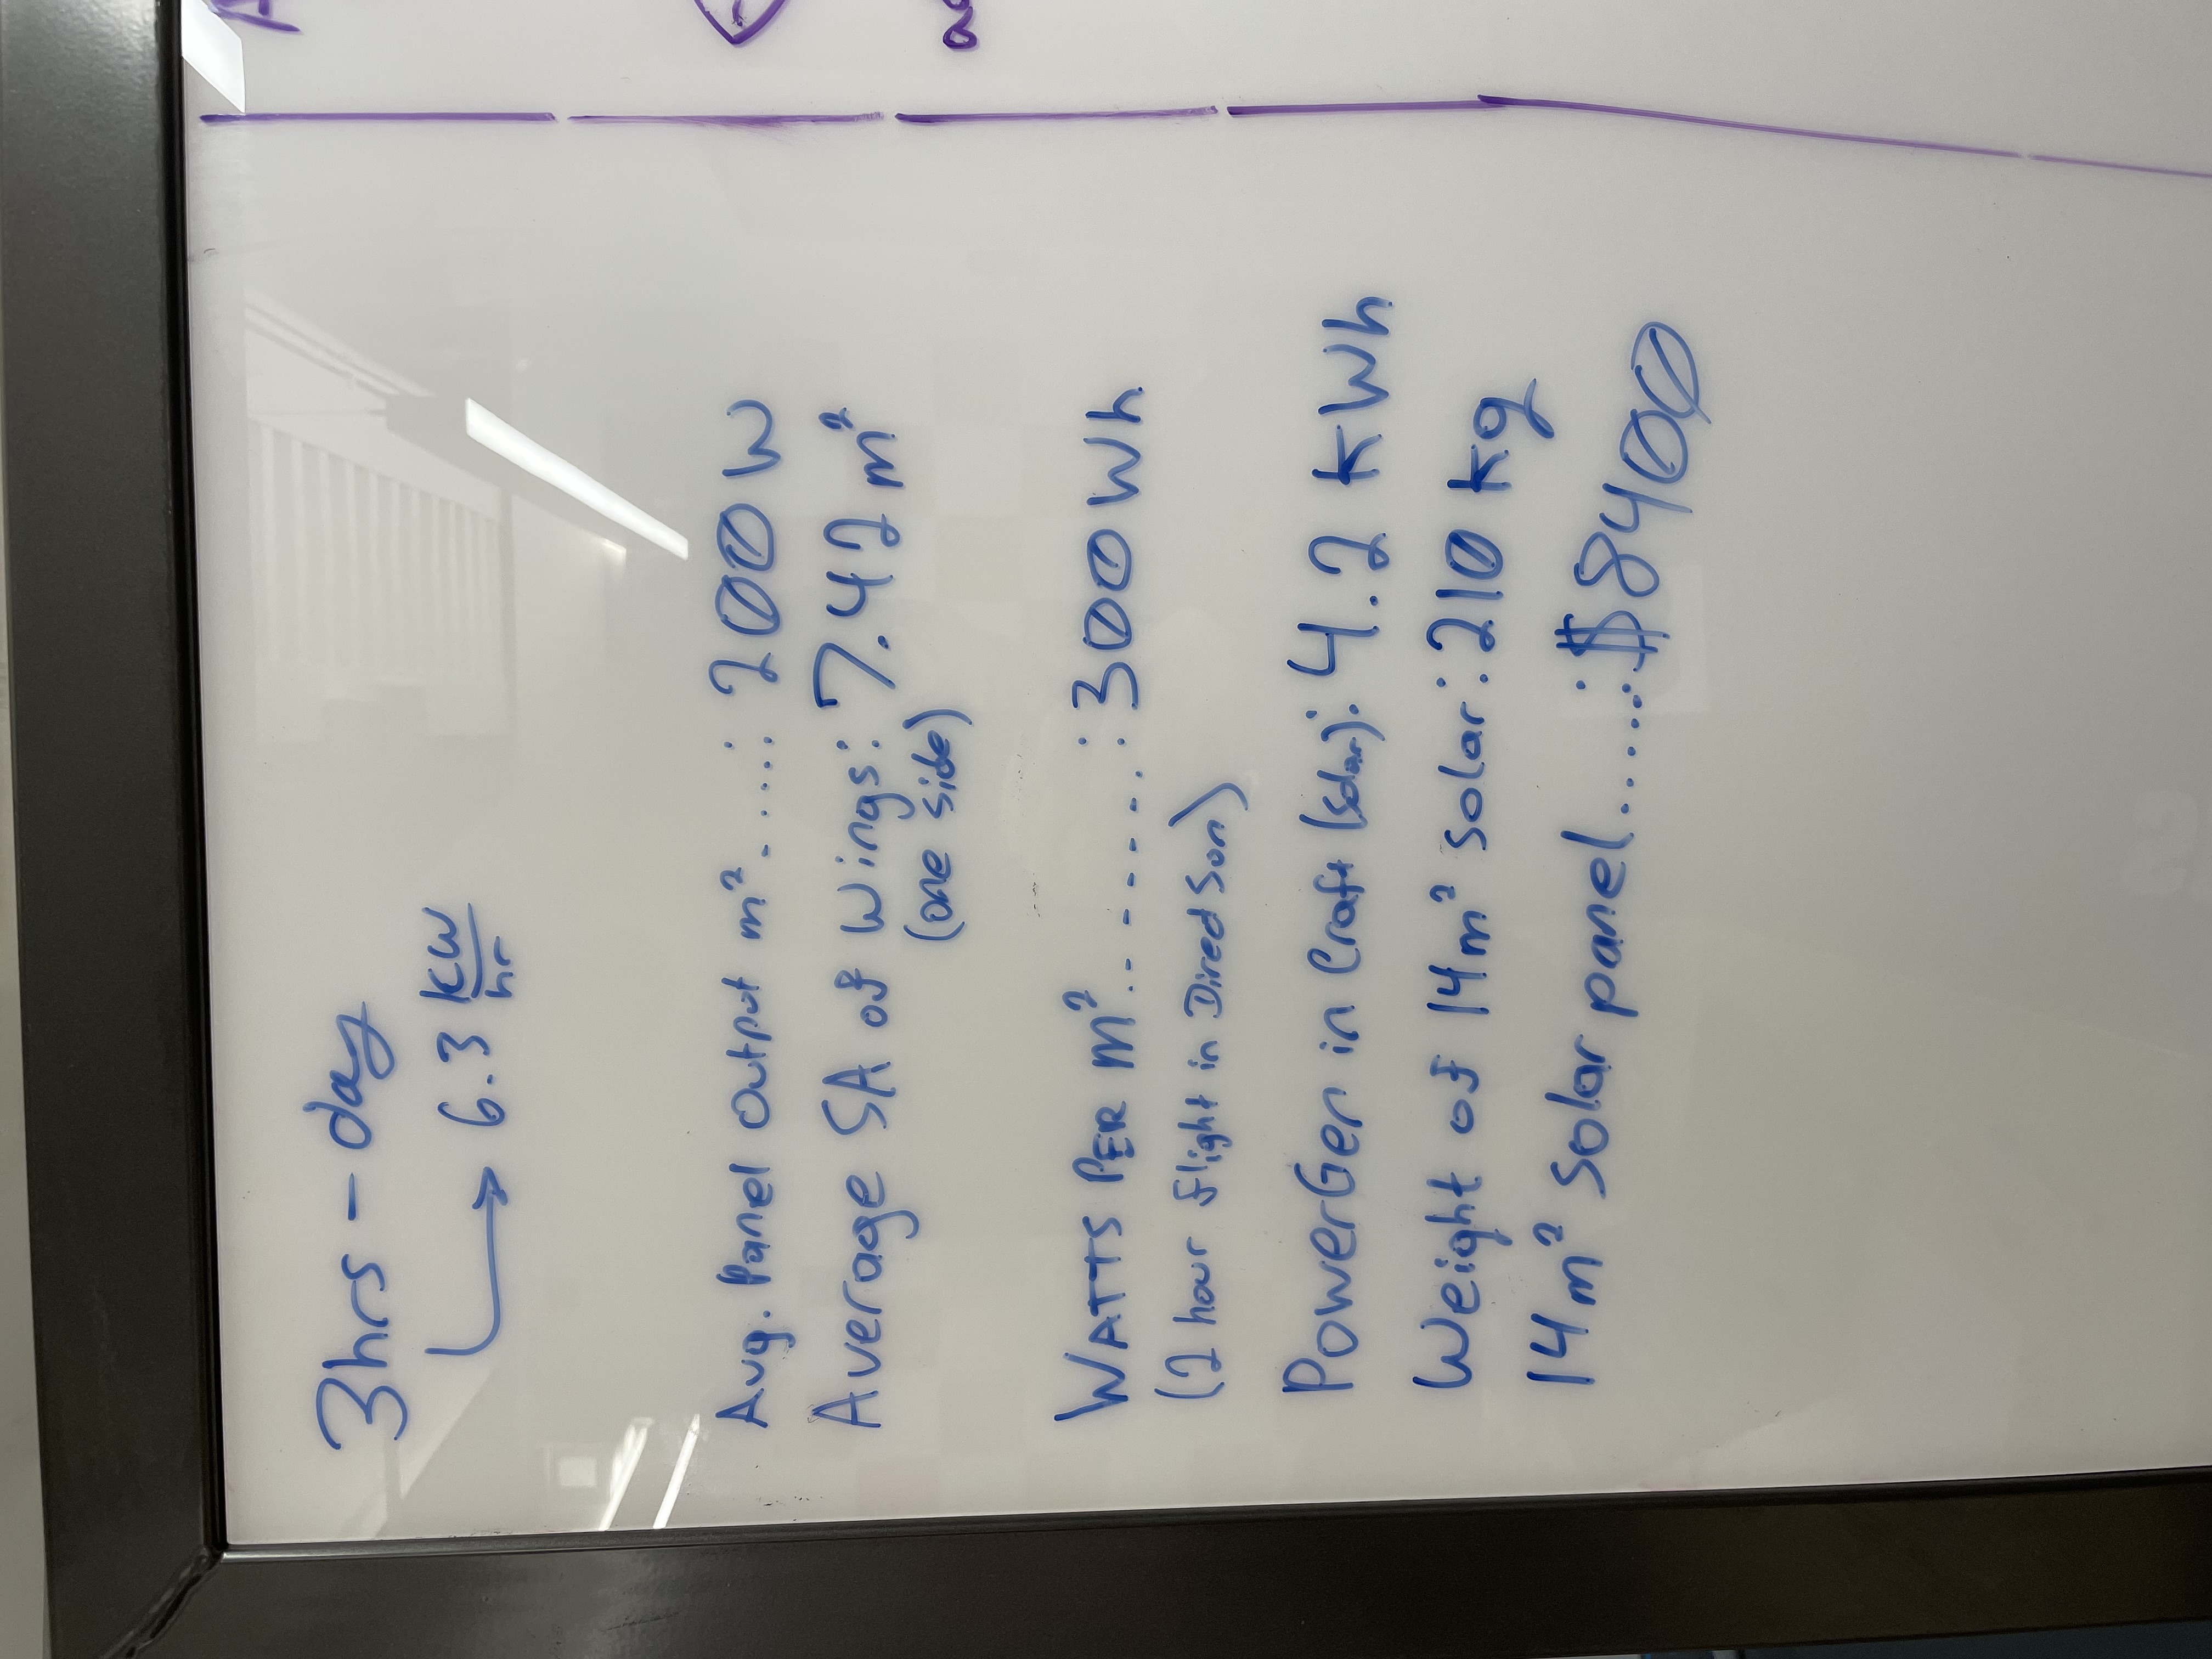 3hrs - day
→ 6.3 kW/hr
Avg. Panel Output m².....: 200W
Average SA of Wings: 7.42 m²
(one side)
WATTS PER m²........: 300Wh
(2 hour flight in Direct Sun)
PowerGen in Craft (solar): 4.2 kWh
Weight of 14m² solar: 210 kg
14m² solar panel......: $8400